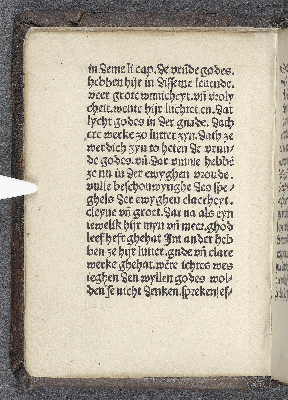 in deme li cap. de vrūde godes.
hebben hijr in disseme leuende.
veer grote wunicheyt. vñ vroly
cheit. wente hijr luchtet en. dat
lycht godes in der gnade. dath
ere werke zo lutter zyn. dath ze
werdich zyn to heten de vrun-
de godes. vñ dar vmme hebbē
ze nu in der ewyghen vroude.
vulle beschouwynghe des spe-
ghels der ewyghen clarcheyt.
cleyne vñ groet. dar na als eyn
iewelik hijr myn vñ meer. ghod
leef heft ghehat Int ander heb
ben ze hijr lutter. gude vñ clare
werke ghehat. wēte ichtes wes
ieghen den wyllen godes wol-
den se nicht denken. spreken ef-